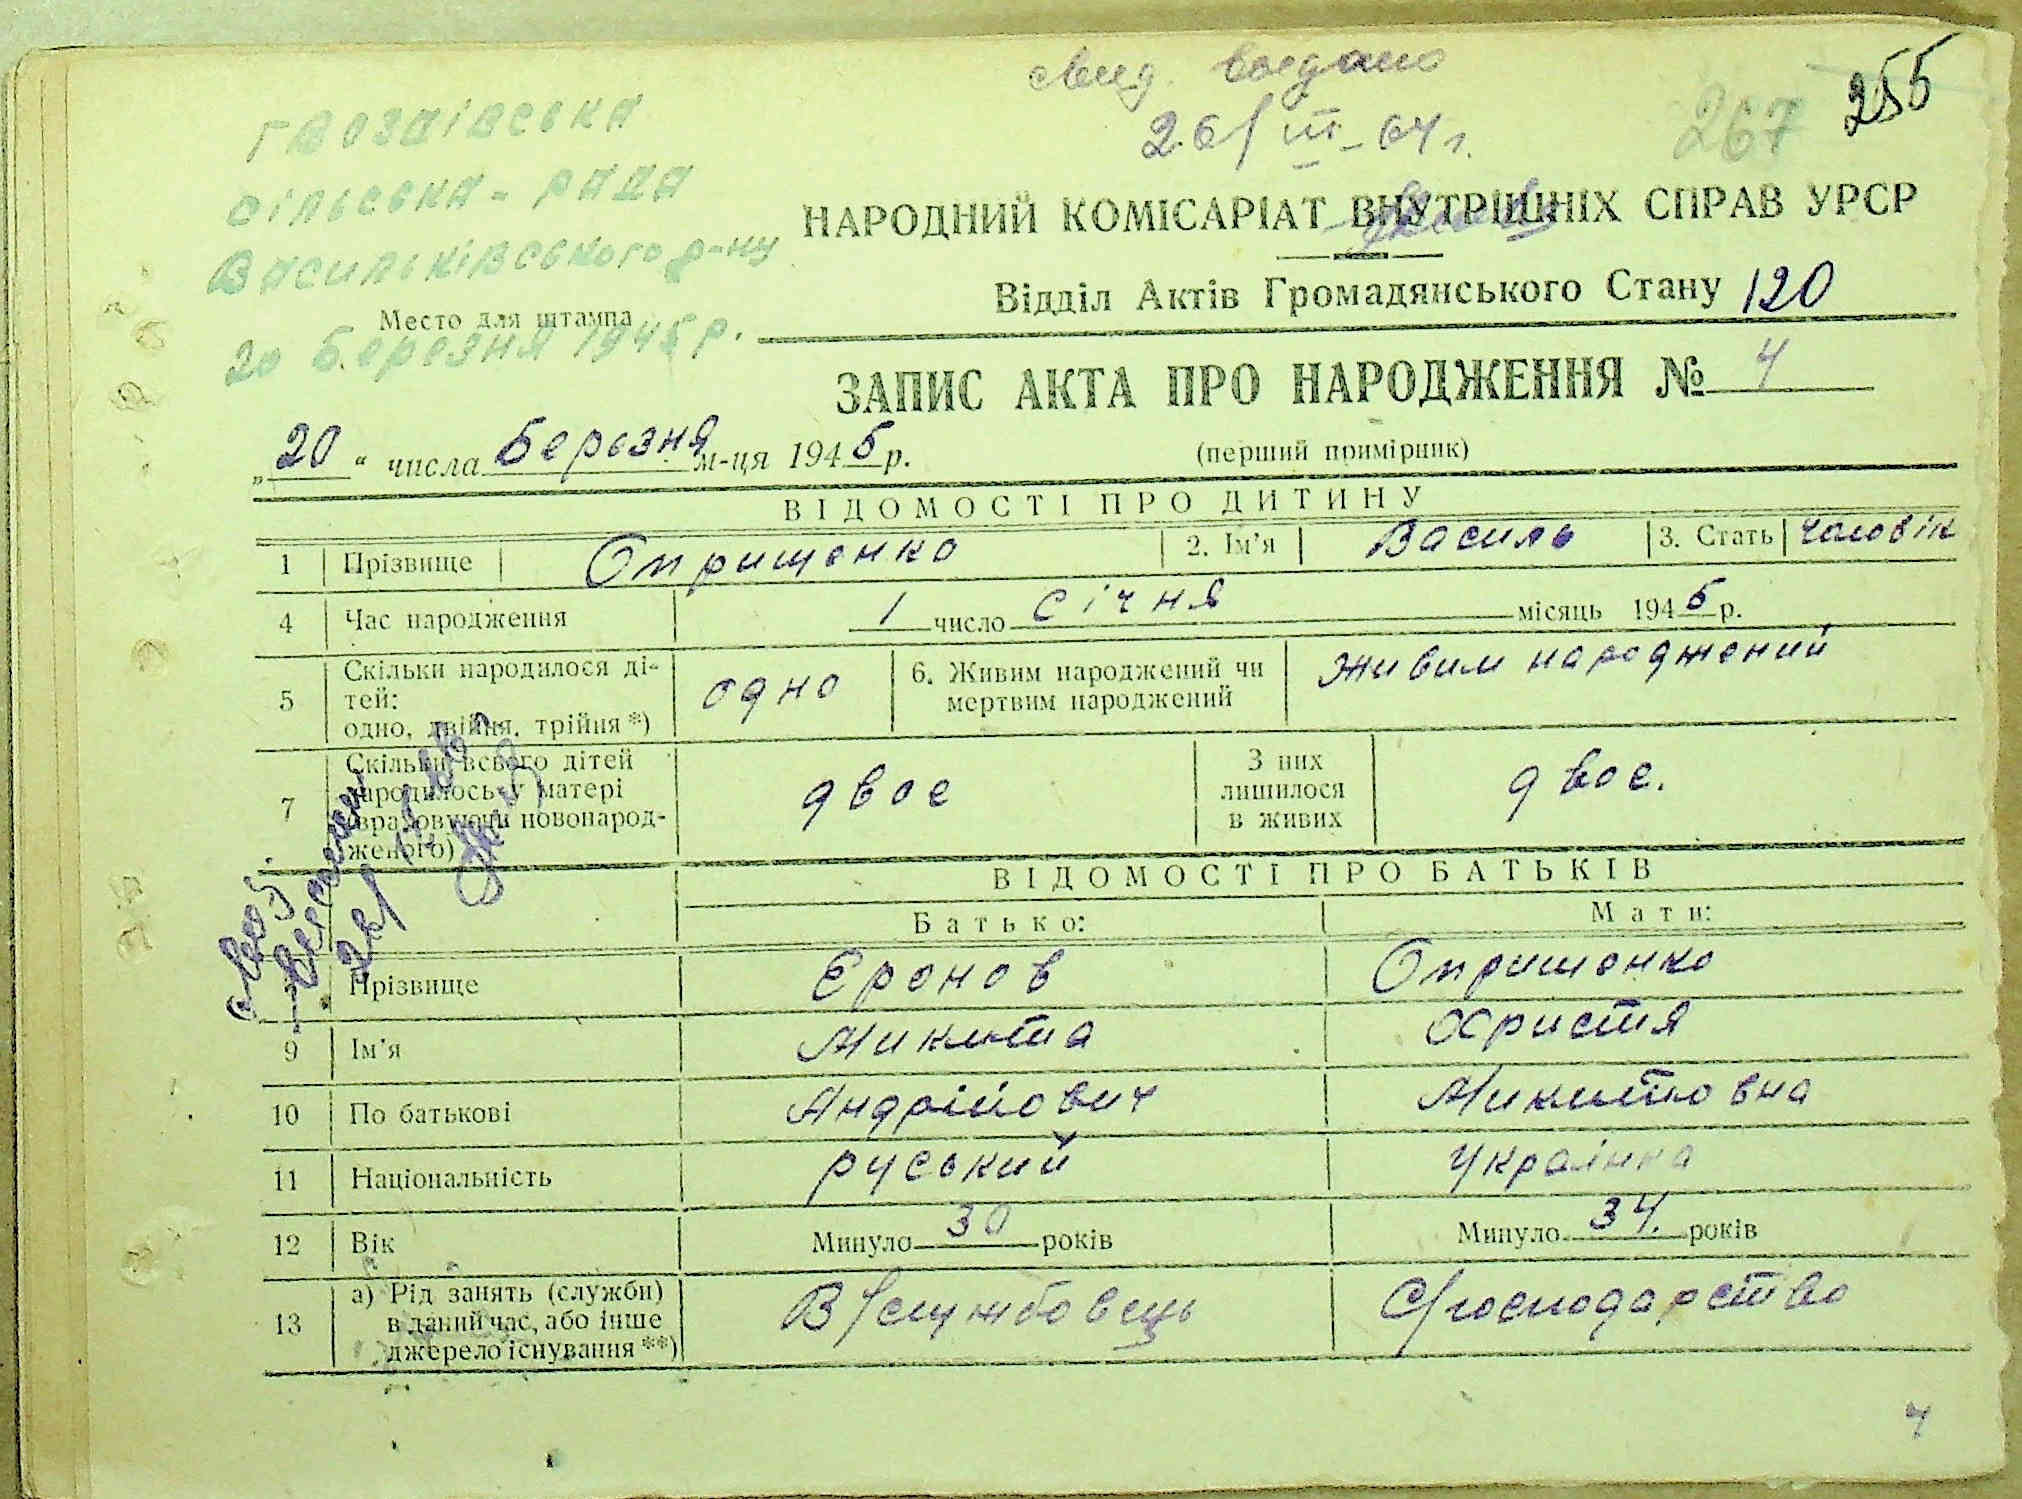 свид. выдано
26/III-64 г.
267 255
Гвоздівська
сільська-рада
Васильківського р-ну
Место для штампа
20 березня 1945 р.
НАРОДНИЙ КОМІСАРІАТ ВНУТРІШНІХ СПРАВ УРСР
Відділ Актів Громадянського Стану 120
ЗАПИС АКТА ПРО НАРОДЖЕННЯ № 4
„20“ числа Березня м-ця 1945 р.
(перший примірник)
ВІДОМОСТІ ПРО ДИТИНУ
1 Прізвище Оприщенко 2. Ім'я Василь 3. Стать чоловік
4 Час народження 1 число Січня місяць 1945 р.
5 Скільки народилося ді-
тей:
одно, двійня, трійня *) одно 6. Живим народжений чи
мертвим народжений живим народжений
7 Скільки всього дітей
народилось у матері
(враховуючи новонарод-
женого) двоє З них
лишилося
в живих двоє.
ВІДОМОСТІ ПРО БАТЬКІВ
Батько: Мати:
Прізвище Єронов Опришенко
9 Ім'я Микита Христя
10 По батькові Андрійович Микитовна
11 Національність руський Українка
12 Вік Минуло 30 років Минуло 34. років
13 а) Рід занять (служби)
в даний час, або інше
джерело існування **) В/службовець С/господарство
4